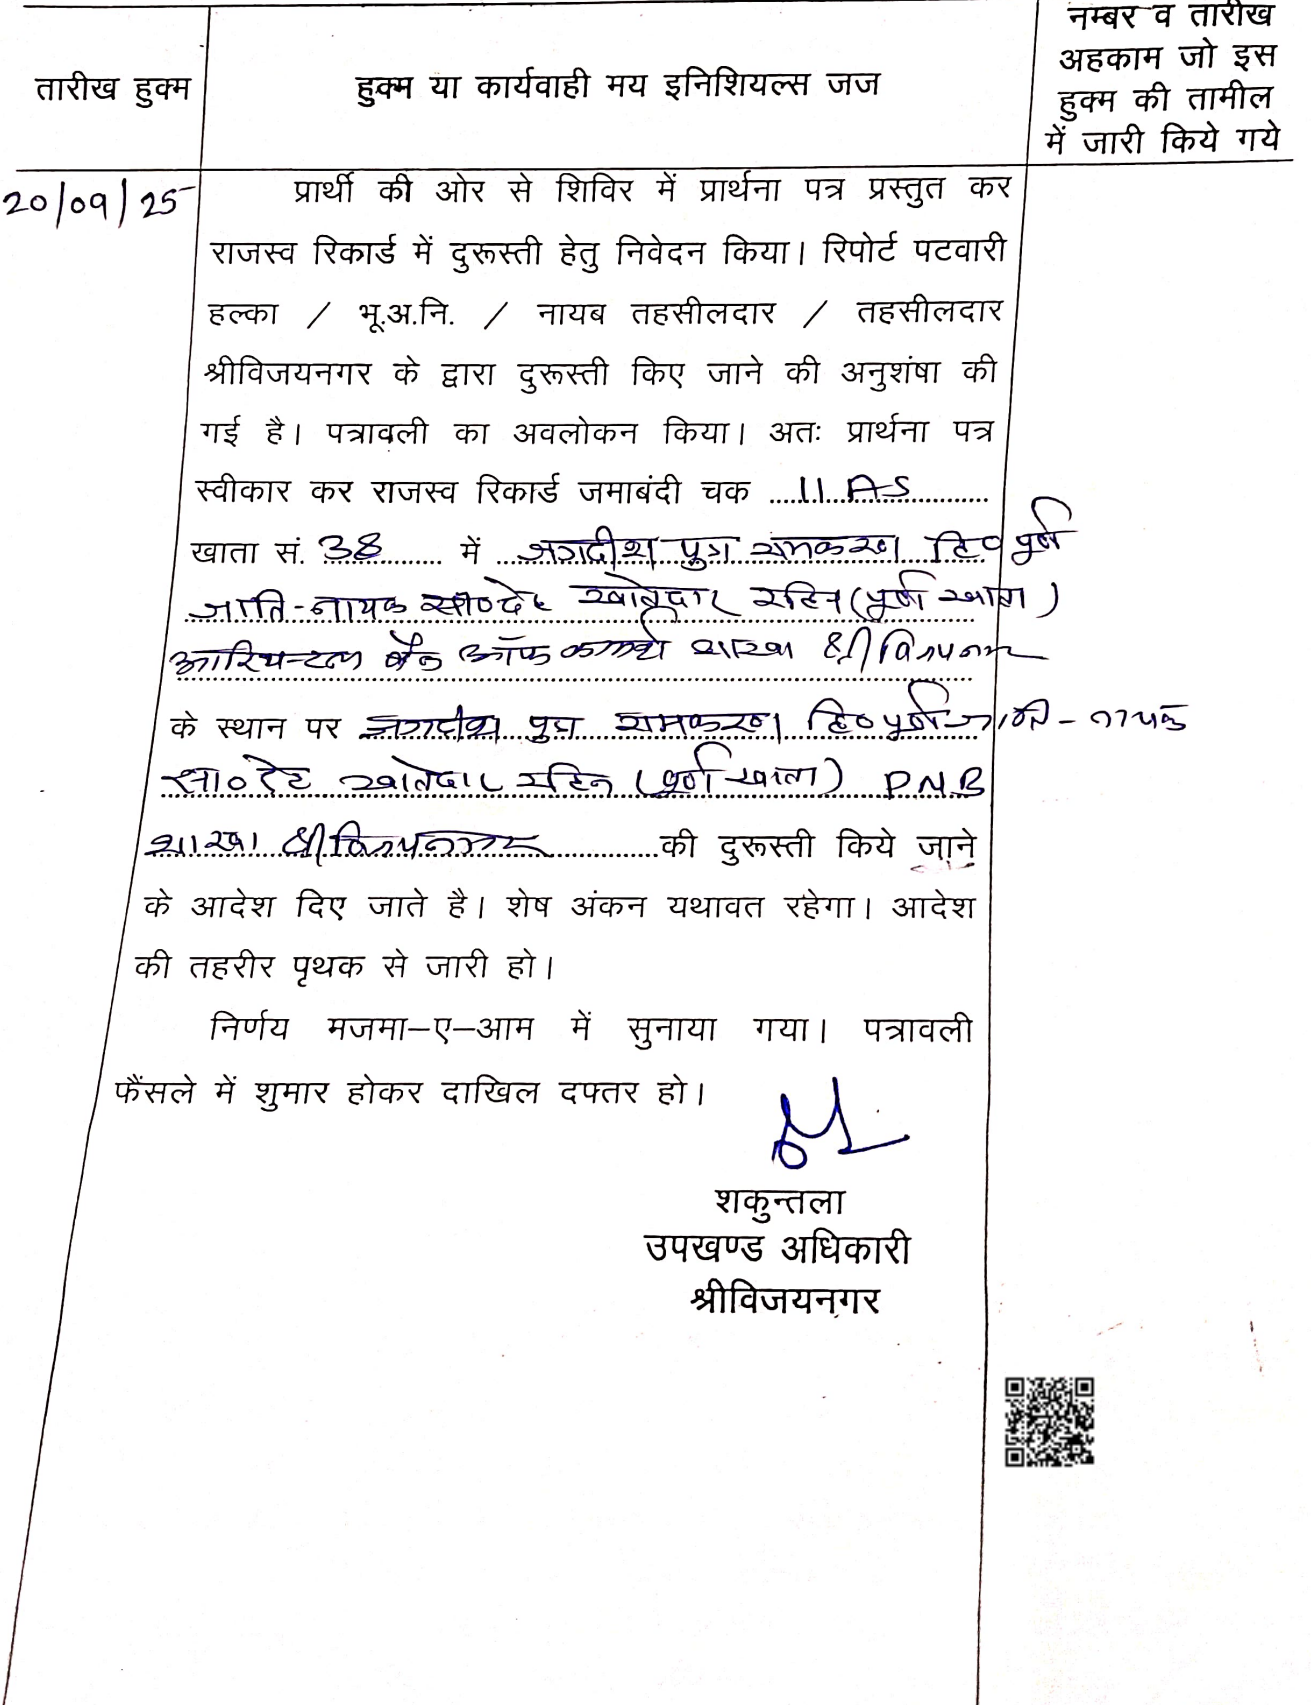 तारीख हुक्म
हुक्म या कार्यवाही मय इनिशियल्स जज
नम्बर व तारीख
अहकाम जो इस
हुक्म की तामील
में जारी किये गये
20/09/25
प्रार्थी की ओर से शिविर में प्रार्थना पत्र प्रस्तुत कर
राजस्व रिकार्ड में दुरूस्ती हेतु निवेदन किया। रिपोर्ट पटवारी
हल्का / भू.अ.नि. / नायब तहसीलदार / तहसीलदार
श्रीविजयनगर के द्वारा दुरूस्ती किए जाने की अनुशंषा की
गई है। पत्रावली का अवलोकन किया। अतः प्रार्थना पत्र
स्वीकार कर राजस्व रिकार्ड जमाबंदी चक 11 AS
खाता सं. 38 में जगदीश पुत्र रामकरण हि० पूर्ण
जाति-नायक सा०देह खातेदार रहिन (पूर्ण खाता)
ओरियन्टल बैंक ऑफ कामर्स शाखा श्रीविजयनगर
के स्थान पर जगदीश पुत्र रामकरण हि० पूर्ण जाति - नायक
सा० देह खातेदार रहिन (पूर्ण खाता) PNB
शाखा श्रीविजयनगर की दुरूस्ती किये जाने
के आदेश दिए जाते है। शेष अंकन यथावत रहेगा। आदेश
की तहरीर पृथक से जारी हो।
निर्णय मजमा–ए–आम में सुनाया गया। पत्रावली
फैंसले में शुमार होकर दाखिल दफ्तर हो।
शकुन्तला
उपखण्ड अधिकारी
श्रीविजयनगर